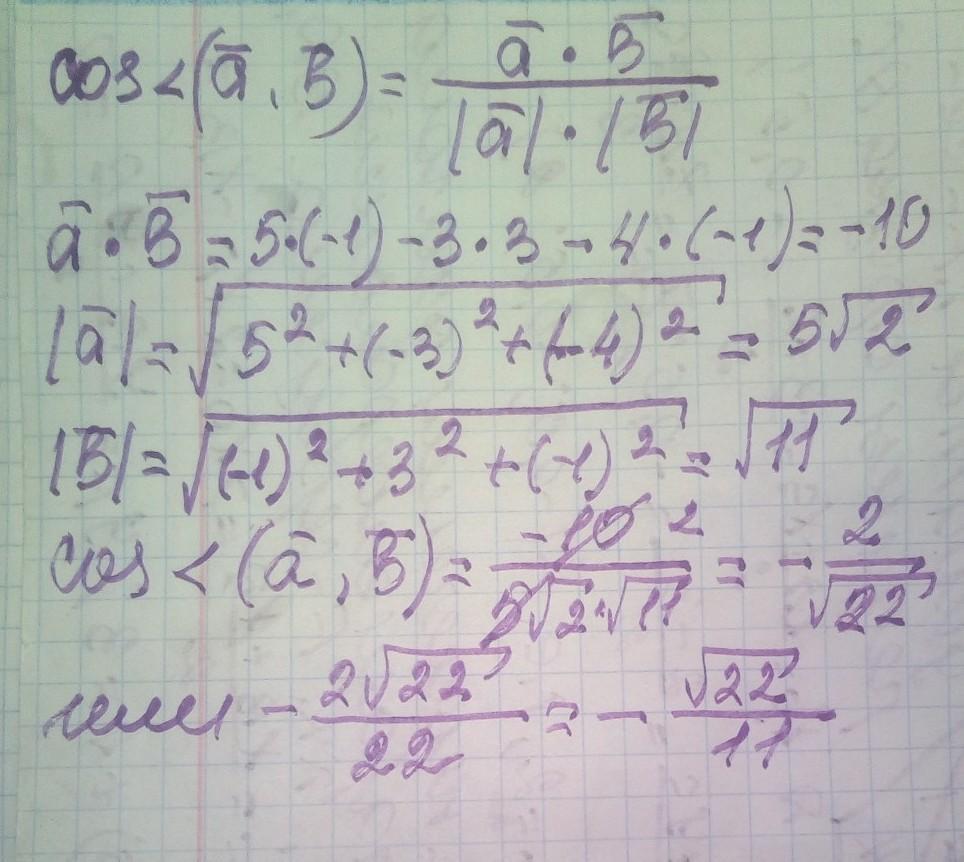 cos<(a̅, b̅) = (a̅ · b̅)/(|a̅| · |b̅|)
a̅ · b̅ = 5·(-1) - 3·3 - 4·(-1) = -10
|a̅| = √(5² + (-3)² + (-4)²) = 5√2
|b̅| = √((-1)² + 3² + (-1)²) = √11
cos < (a̅, b̅) = (-10 2)/(5√2·√11) = - 2/√22
или - 2√22/22 = - √22/11